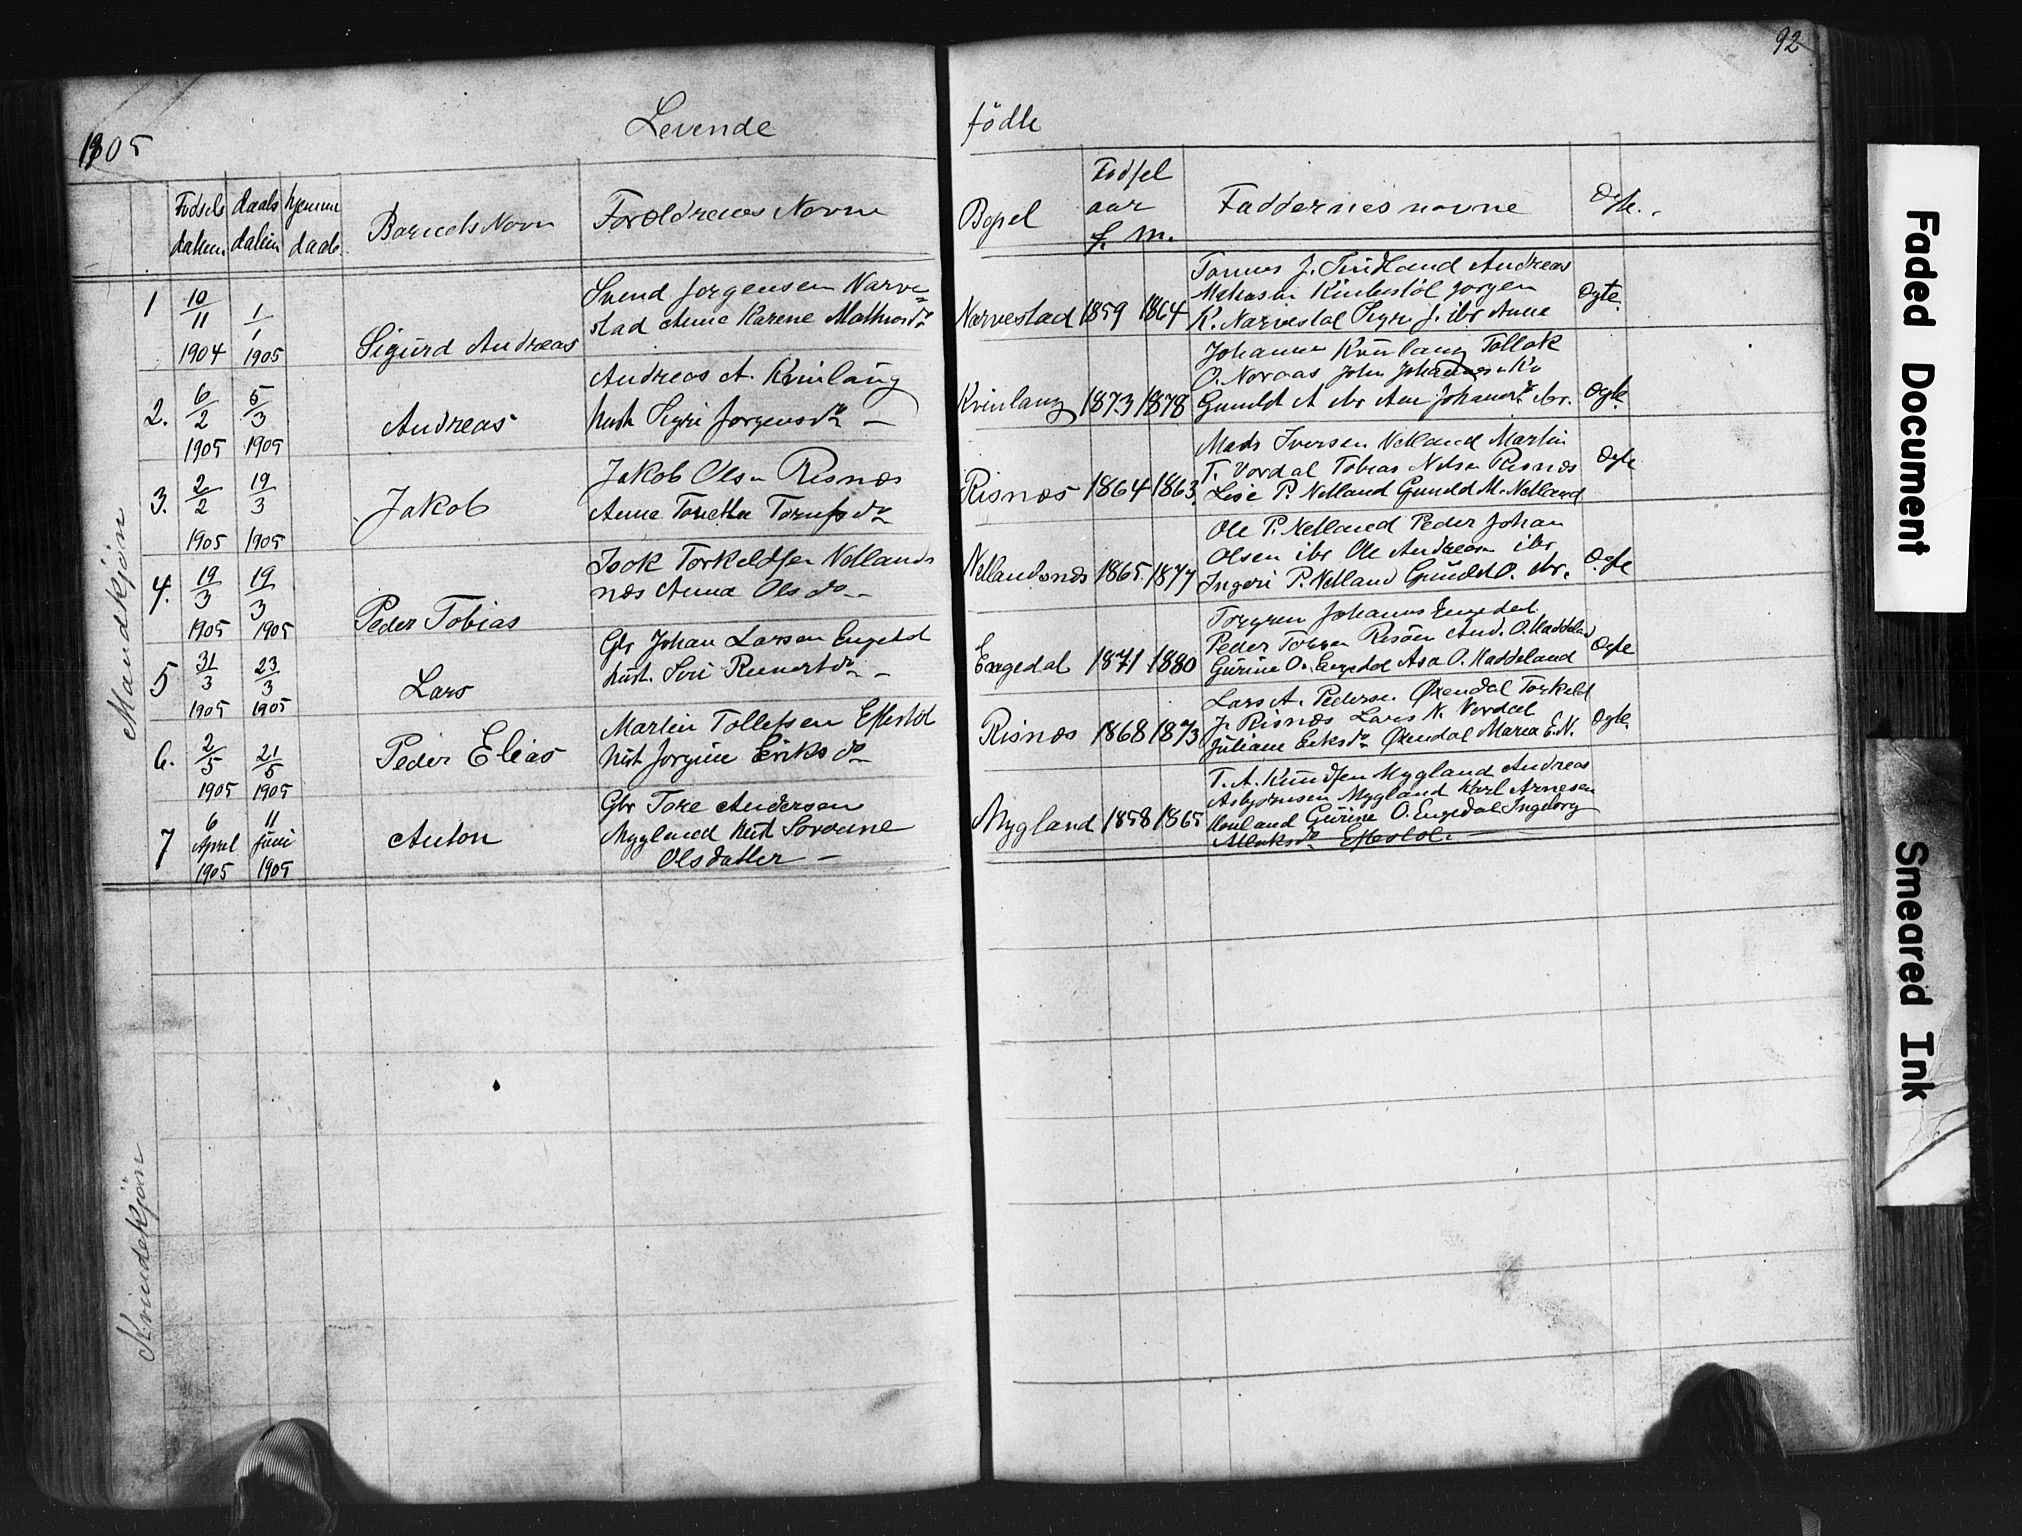 92
1905
Levende
fødte
Fødsels daabs hjemme
datum datum daab
Barnets Navn
Forældrenes Navne
Bopel
Fødsel
aar
f. m.
Faddernes navne
Ægte.
Mandkjøn
1 10/11 1904 1/1 1905
Sigurd Andreas
Svend Jørgensen Narve=
stad Anna Karene Mathiasdr
Narvestad 1859 1864
Andreas
Jørgen
K. Narvestad Sigri J. ibr Anne
Ægte.
2. 6/2 1905 5/3 1905
Andreas
Andreas A. Kvinlaug
hust Sigri Jørgensdr —
Kvinlaug 1873 1878
Johannes Kvinlaug Tollak
O. Noraas John Johannesen Kv
Gunild A ibr Ane Johannesdr ibr.
Ægte.
3. 2/2 1905 19/3 1905
Jakob
Jakob Olsen Risnæs
Anne Tonetha
Risnæs 1864 1863
Mads Iversen Netland Martin
T. Vordal Tobias Nelsen Risnæs
Lise P. Netland Gunild M. Netland
Ægte
4. 19/3 1905 19/3 1905
Peder Tobias
Isak Torkeldsen Netlands
næs Anna Olsdr —
Netlandsnæs 1865. 1877
Ole P. Netland Peder Johan
Olsen ibr Ole Andreasen ibr
Ingeri P. Netland Gunild O. ibr.
Ægte
5 31/3 1905 23/3 1905
Lars
Gbr Johan Larsen Engedal
hust. Siri Reinertsdr —
Engedal 1871 1880
Johannes Engedal
Peder Risøen And. O. Haddeland
Gurine O. Engedal Asa O. Haddeland
Ægte
6. 2/5 1905 21/5 1905
Peder Elias
Martin Tollefsen Eftestøl
hust Jørgine Eriksdr
Risnæs 1868 1873
Lars A. Pedersen Øxendal Torkeld
J. Risnæs Lars N. Vordal
Juliane Eriksdr Øxendal Maria E. N.
Ægte.
7 6 April 1905 11 Juni 1905
Anton
Gbr Tore Andersen
Mygland hust Sorane
Olsdatter —
Mygland 1858 1865
T. A. Knudsen Mygland Andreas
Asbjørnsen Mygland Karl Arnesen
Gurine O. Engedal Ingeborg
Eftestøl.
Kvindekjøn
Faded Document
Smeared Ink